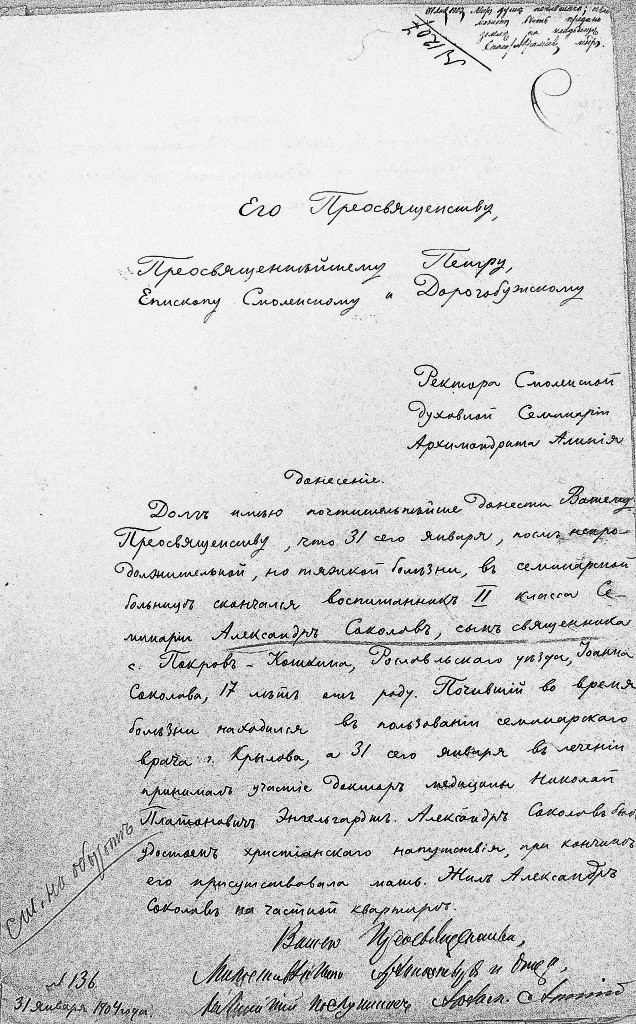 31 Янв. 1904. Мир душе почившаго;
может быть предано
земле на кладбище
№ 1204
Его Преосвященству,
Преосвященнѣйшему Петру,
Епископу Смоленскому и Дорогобужскому
Ректора Смоленской
Духовной Семинаріи
Архимандрита
Донесеніе.
Долгъ имѣю почтительнѣйше донести Вашему
Преосвященству, что 31 сего января, послѣ непро-
должительной, но тяжкой болѣзни, въ семинарской
больницѣ скончался воспитанникъ II класса Се-
минаріи Александръ Соколовъ, сынъ священника
с. Покровъ-Кошкина, Рославльскаго уѣзда, Іоанна
Соколова, 17 лѣтъ отъ роду. Почившій во время
болѣзни находился въ пользованіи семинарскаго
врача г. Крылова, а 31 сего января въ леченіи
принималъ участіе докторъ медицины Николай
Платоновичъ Энгельгардтъ. Александръ Соколовъ былъ
удостоенъ христіанскаго напутствія, при кончинѣ
его присутствовала мать. Жилъ Александръ
Соколовъ на частной квартирѣ.
см. на оборотѣ
Вашего Преосвященства,
Милостивѣйшаго Архипастыря и Отца,
послушникъ
№ 136.
31 января 1904 года.